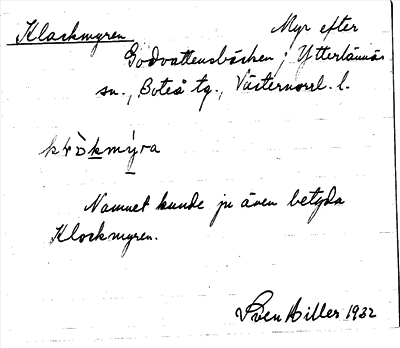 Klackmyren
Myr efter
Godvattensbäcken; Ytterlännäs
sn., Boteå tg., Västernorrl. l.
Namnet kunde ju även betyda
Klockmyren.
Sven Hiller 1932